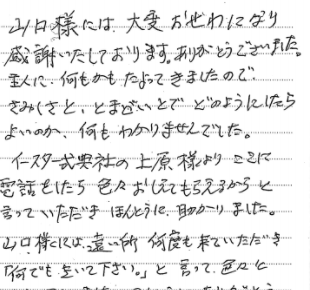 山口様には、大変おせわになり
感謝いたしております。ありがとうございました。
主人に、何もかもたよってきましたので、
さみしさと、とまどいとで どのようにしたら
よいのか、何もわかりませんでした。
イースター式典社の上原様より ここに
電話をしたら 色々おしえてもらえるからと
言っていただき ほんとうに、助かりました。
山口様には、遠い所 何度も来ていただき
「何でも 言いて下さい。」と 言って 色々と